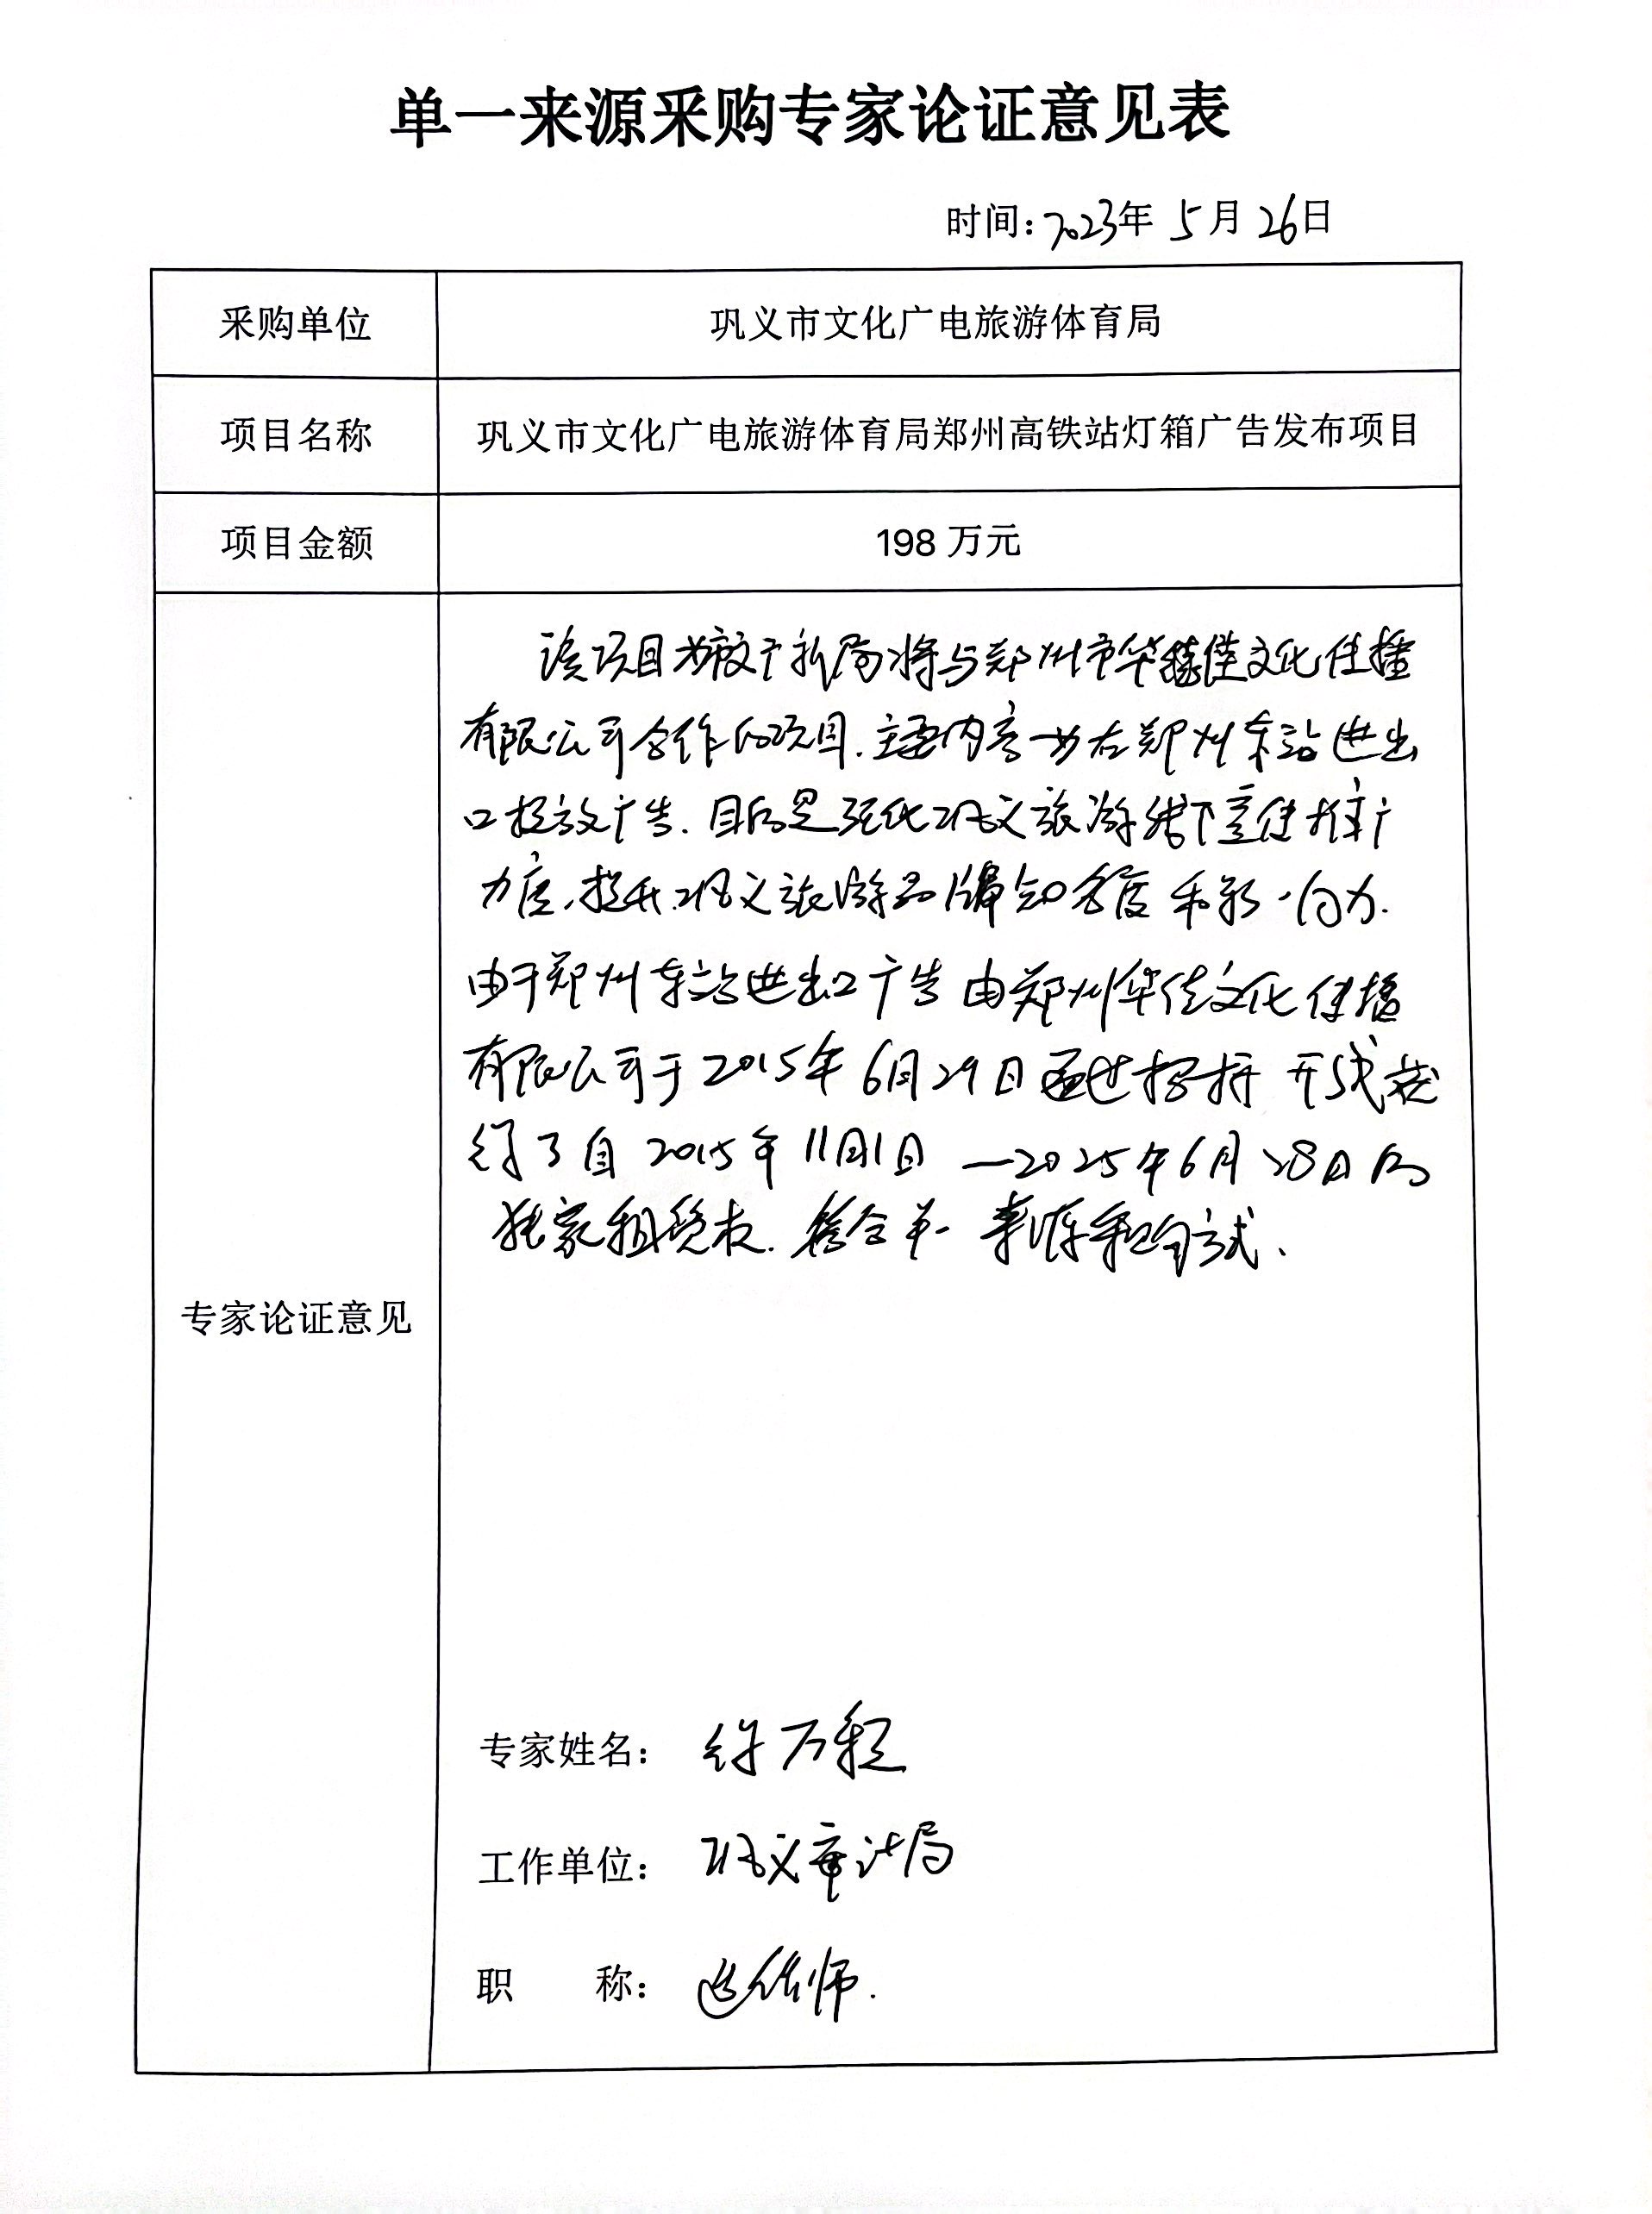 单一来源采购专家论证意见表
时间:2023年5月26日
采购单位 巩义市文化广电旅游体育局
项目名称 巩义市文化广电旅游体育局郑州高铁站灯箱广告发布项目
项目金额 198万元
该项目为 局将与郑州市华 佳文化传播
有限公司合作的项目.主要内容 在郑州东站进出
口投放广告.目的是强化巩义旅游线下宣传推广
力度,提升巩义旅游品牌知名度和影响力.
由于郑州东站进出口广告由郑州华佳文化传播
有限公司于2015年6月29日通过招拍 形式获
得了自2015年11月1日—2025年6月28日的
独家租赁权.符合单一来源采购方式、
专家论证意见
专家姓名: 万程
工作单位: 巩义审计局
职 称: 造价师.